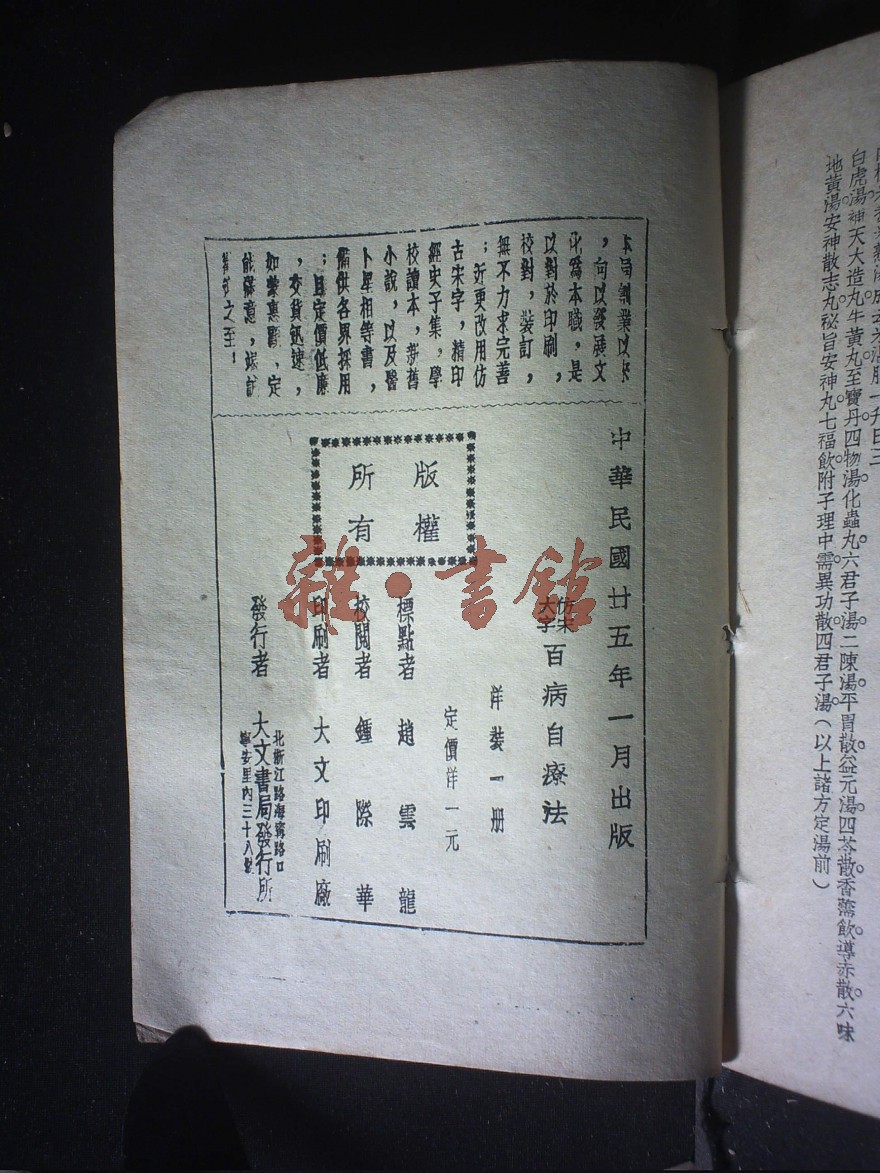 白虎湯補天大造丸牛黃丸至寶丹四物湯化蟲丸六君子湯二陳湯平胃散益元湯四苓散香薷飲導赤散六味
地黃湯安神散志丸秘旨安神丸七福飲附子理中需異功散四君子湯（以上諸方定湯前）
本局創業以來
，向以發展文
化爲本職，是
以對於印刷，
校對，裝訂，
無不力求完善
；近更改用仿
古宋字，精印
經史子集，學
校讀本，新舊
小說，以及醫
卜星相等書，
備供各界採用
；且定價低廉
，交貨迅速，
如蒙惠顧，定
能滿意，
之至！
中華民國廿五年一月出版
仿宋
大字
百病自療法
洋裝一册
定價洋一元
版權
所有
標點者 趙雲龍
校閱者 鍾際華
印刷者 大文印刷廠
發行者 大文書局發行所
北浙江路海寧路口
寧安里內三十八號
雜·書館